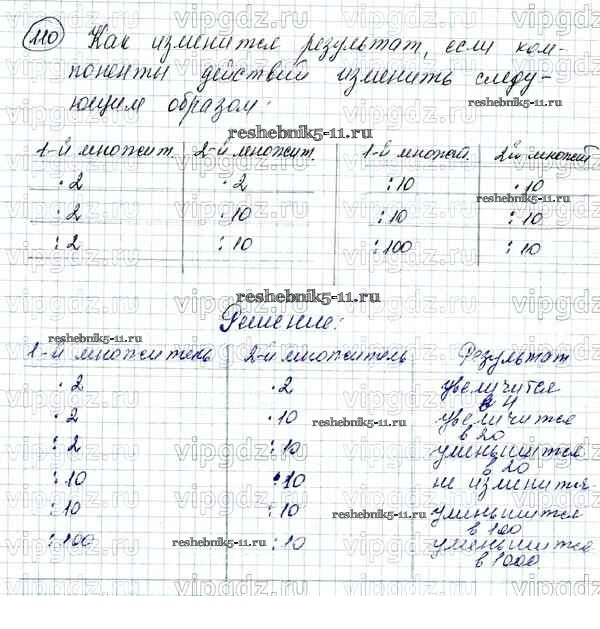 110 Как изменится результат, если ком-
поненты действий изменить следу-
ющим образом:
reshebnik5-11.ru
1-й множит. 2-й множит. 1-й множит. 2й множит
· 2 · 2 : 10 · 10
reshebnik5-11.ru
: 2 · 10 : 10 : 10
: 2 : 10 : 100 : 10
reshebnik5-11.ru
Решение:
reshebnik5-11.ru
1-й множитель 2-й множитель Результат
· 2 · 2 увеличится
в 4
· 2 · 10 увеличится
reshebnik5-11.ru
в 20
: 2 : 10 уменьшится
в 20
: 10 : 10 не изменится
: 10 : 10 уменьшится
в 100
: 100 : 10 уменьшится
reshebnik5-11.ru
в 1000.